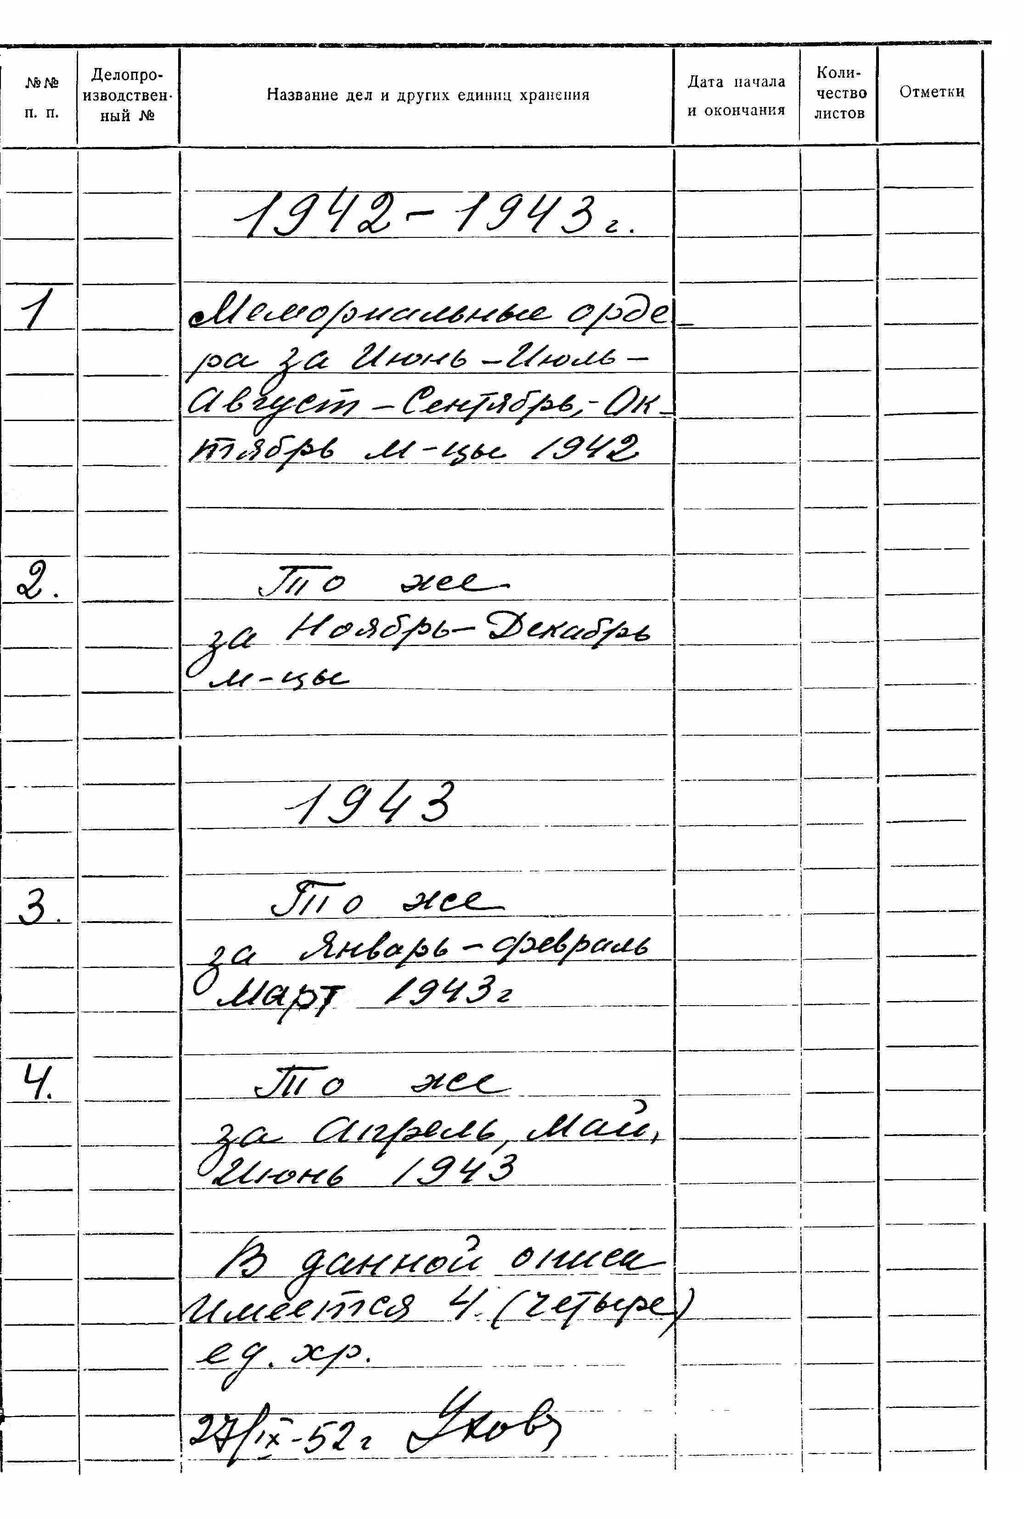 №№ п. п.
Делопро-изводствен-ный №
Название дел и других единиц хранения
Дата начала и окончания
Коли-чество листов
Отметки
1942-1943г.
1 Мемориальные орде-
ра за Июнь-Июль-
Август-Сентябрь,-Ок-
тябрь м-цы 1942
2. То же
за Ноябрь-Декабрь
м-цы
1943
3. То же
за Январь-февраль
Март 1943г
4. То же
за Апрель, Май,
Июнь 1943
В данной описи
имеется 4. (четыре)
ед. хр.
27/IX-52г